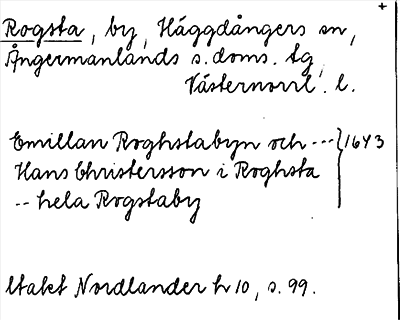 +
Rogsta, by, Häggdångers sn,
Ångermanlands s. doms. tg,
Västernorrl. l.
Emillan Roghstabyn och ---
Hans Christersson i Roghsta } 1643
-- hela Rogstaby
Utakt Nordlander h 10, s. 99.